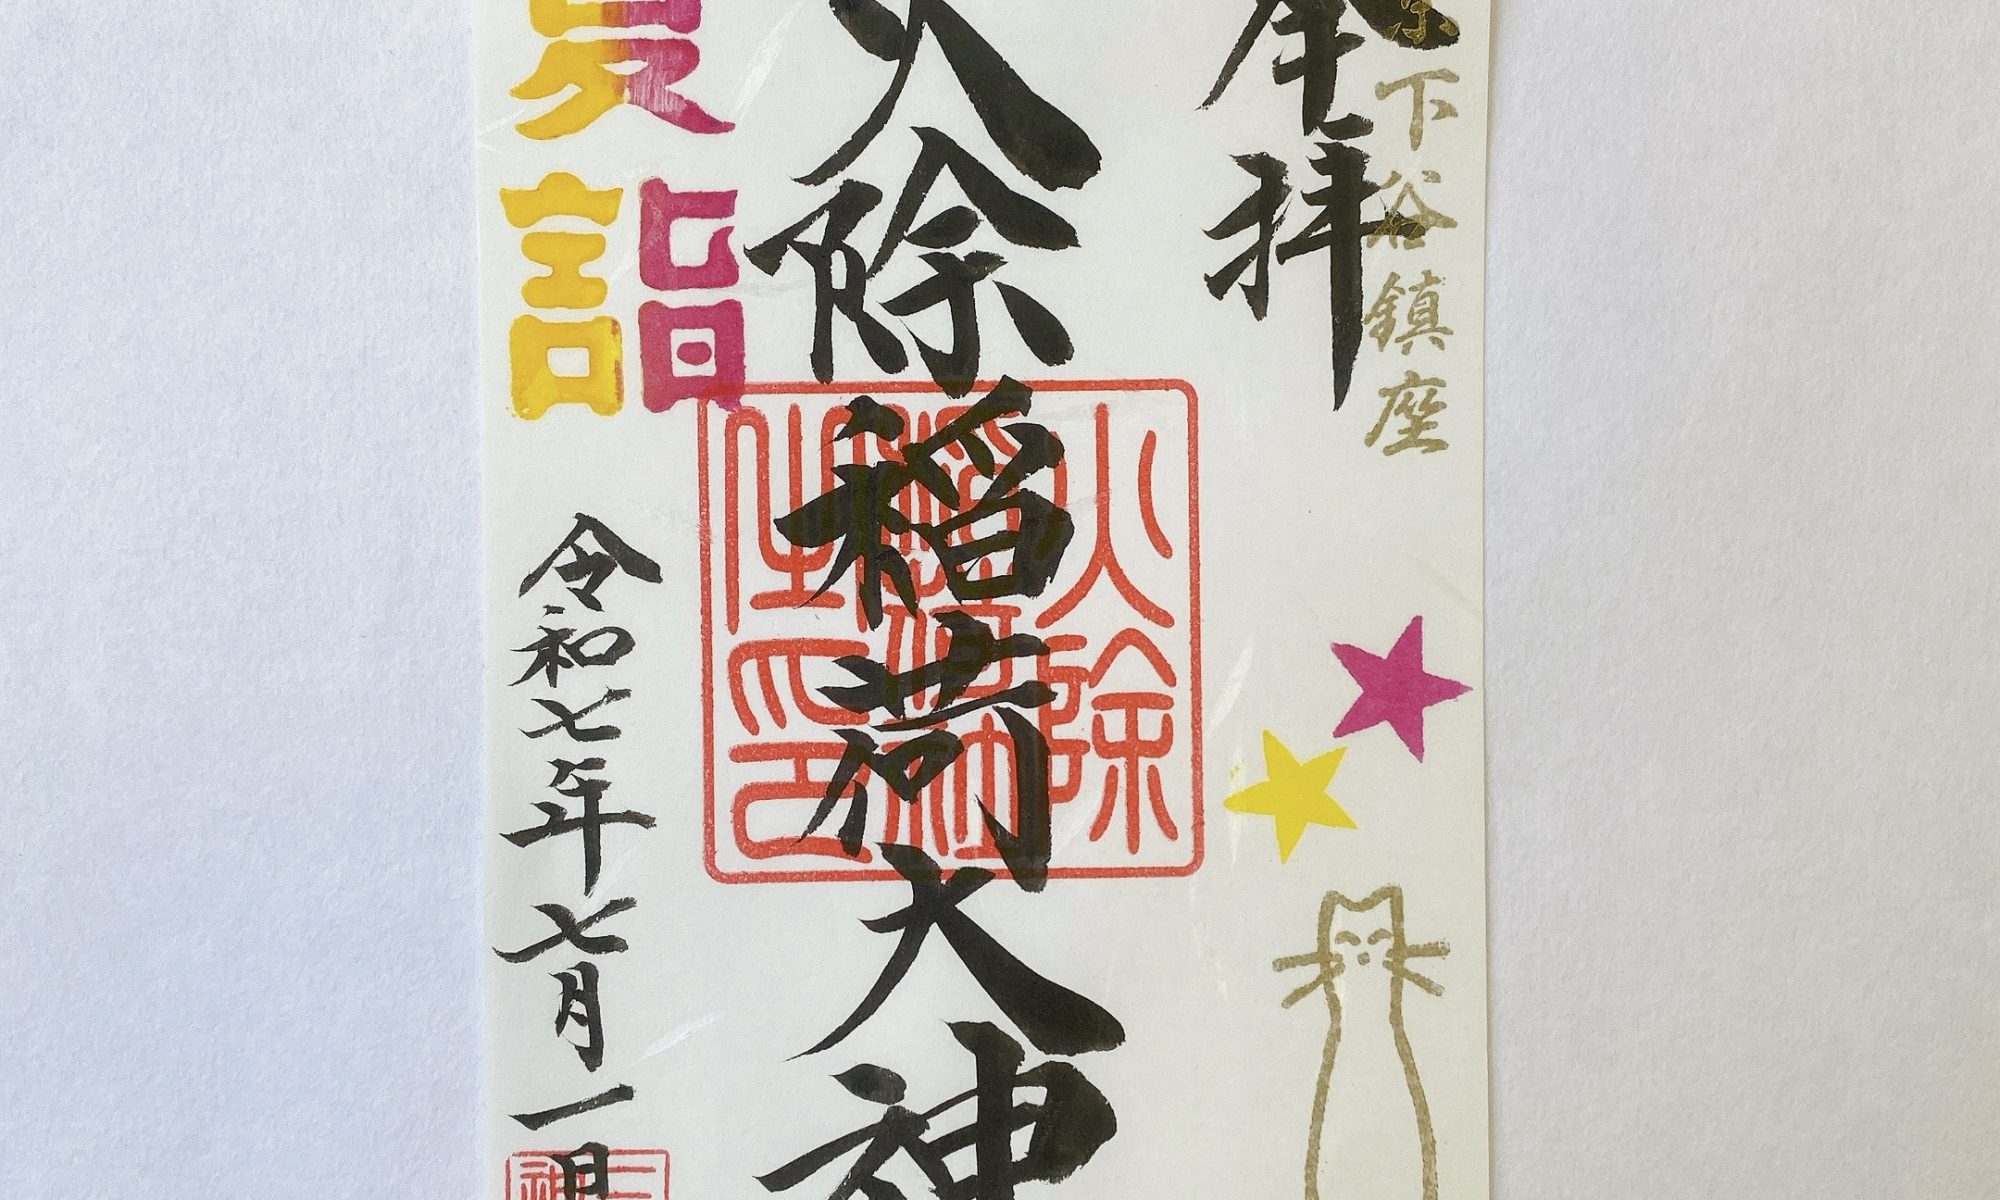 下谷鎮座
奉拝
火除稲荷大神
火除
稲荷神
社印
夏詣
令和七年七月一日